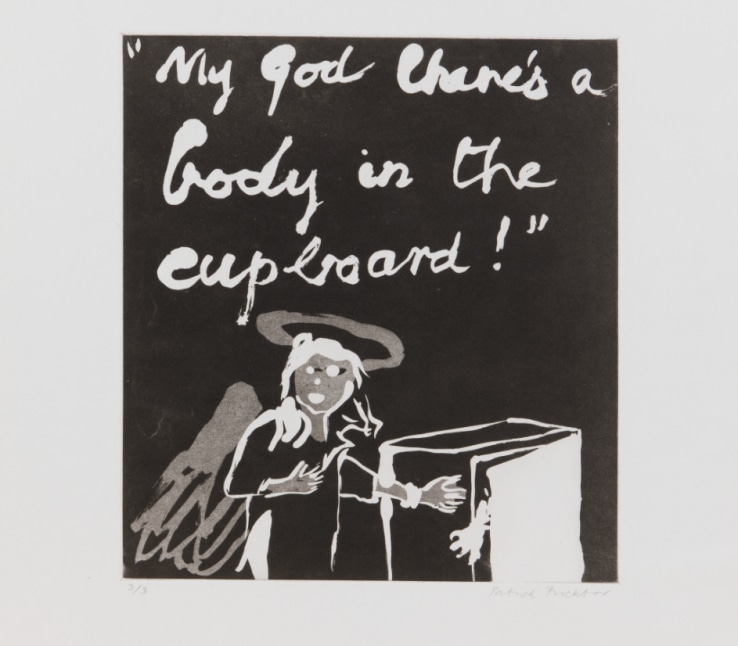 "My God there's a
body in the
cupboard!"
Patrick Procktor